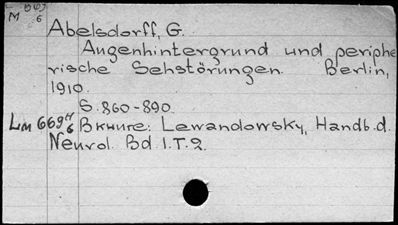 M 669/6
Abelsdorff, G.
Augenhintergrund und periphe
rische Sehstörungen. Berlin,
1910.
S. 860-890.
Lм 669 н/6 В книге: Lewandowsky, Handb. d.
Neurol. Bd. I. T. 2.